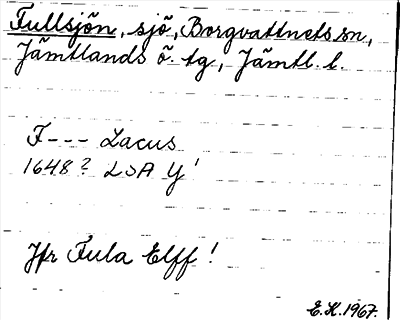 Fullsjön, sjö, Borgvattnets sn,
Jämtlands ö. tg, Jämtl. l.
F--- Lacus
1648? LSA Y1
Jfr Fula Elff!
E.H.1967.